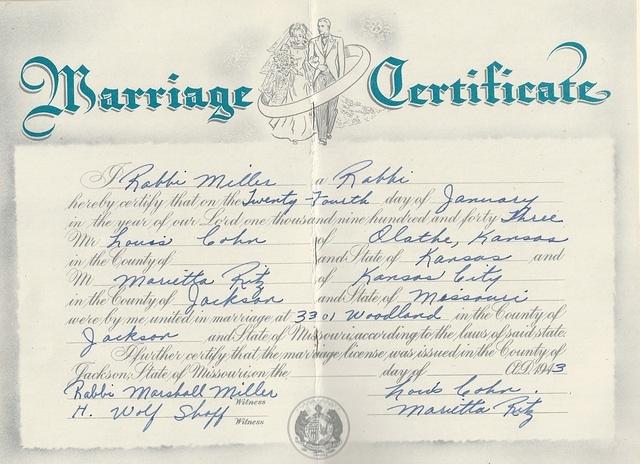 Marriage Certificate
I Rabbi Miller a Rabbi
hereby certify that on the Twenty Fourth day of January
in the year of our Lord, one thousand nine hundred and forty Three
Mr. Louis Cohn of Olathe, Kansas
in the County of and State of Kansas and
M Marietta Ritz of Kansas City
in the County of Jackson and State of Missouri
were by me united in marriage at 3301 Woodland in the County of
Jackson and State of Missouri, according to the laws of said state.
I further certify that the marriage license was issued in the County of
Jackson, State of Missouri, on the day of A.D. 1943
Rabbi Marshall Miller Louis Cohn.
Witness
H. Wolf Shoff Marietta Ritz
Witness